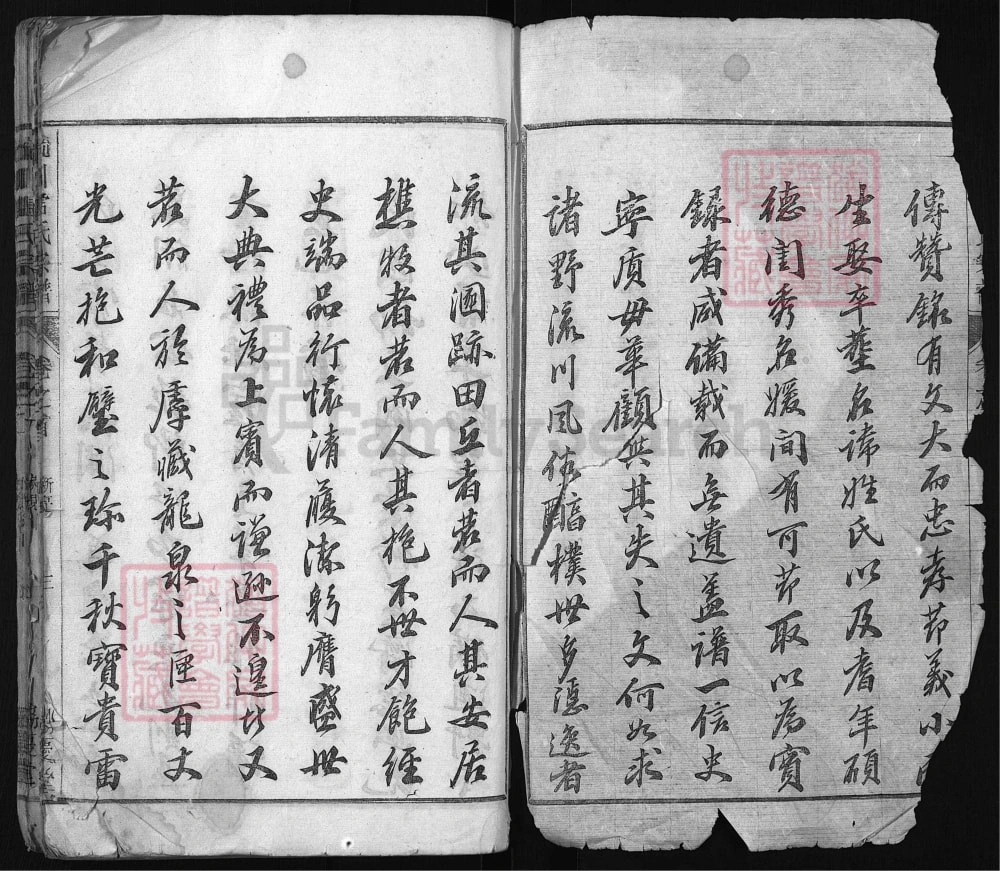 傳贊銘有文大而忠孝節義小而
生娶卒塟名諱姓氏以及耆年碩
德閨秀名媛間有可節取以為實
錄者咸備載而無遺盖譜一信史
寧質毋華顧與其失之文何如求
諸野流川風俗醕樸世多隱逸者
流其溷跡田丘者若而人其安居
樵牧者若而人其抱不世才飽經
史端品行懷清履潔躬膺盛世
大典禮為上賓而謙遜不遑此又
若而人於虖藏龍泉之匣百丈
光芒抱和璧之珍千秋寶貴雷
FamilySearch